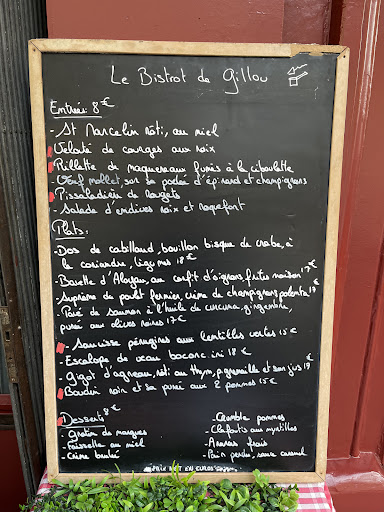 Le Bistrot de Gillou
Entrées 8€
- St Marcelin rôti, au miel
Velouté de courges aux noix
Rillette de maquereaux fumés à la ciboulette
Oeuf mollet, sur sa poelée d'épinard et champignons
- Pissaladière de rougets
- Salade d'endives noix et roquefort
Plats:
- Dos de cabillaud, bouillon bisque de crabe, à
la coriandre, légumes 18€
- Bavette d'Aloyau, au confit d'oignons, frites maison 17€
- Suprême de poulet fermier, crème de champignons, polenta 19€
- Pavé de saumon à l'huile de curcuma, gingembre,
purée aux olives noires 17€
- Saucisse périgine aux lentilles vertes 15€
- Escalope de veau 18€
- Gigot d'agneau, rôti au thym, grenaille et son jus 19€
Boudin noir et sa purée aux 2 pommes 15€
Desserts 8€
- gratin de mangues
- faisselle au miel
- Crème brulée
- Crumble pommes
- Clafoutis aux myrtilles
- Ananas frais
- Pain perdu, sauce caramel
PRIX NET EN EUROS